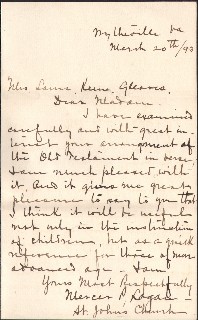 Wytheville Va
March 20th/93
Mrs. Kent Gleaves,
Dear Madam:
I have examined
carefully and with great in-
terest your arrangement of
the Old Testament in verse.
I am much pleased with
it. And it gives me great
pleasure to say to you that
I think it will be helpful
not only in the instruction
of children, but as a quick
reference for those of more
advanced age. I am
Yours Most Respectfully
Mercer P. Logan
St. John's Church